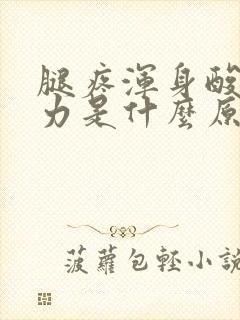 腿疼渾身酸
力是什麼原
菠蘿包輕小說